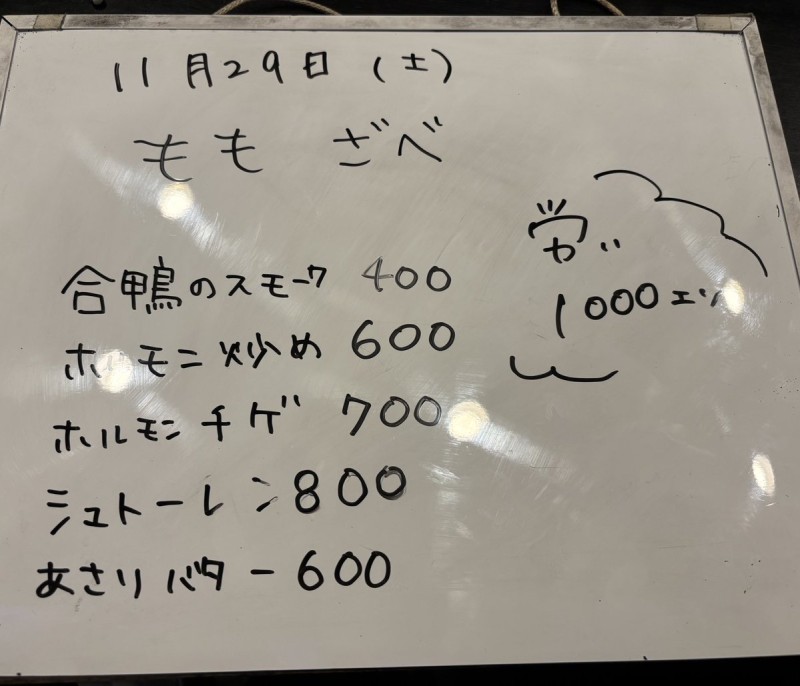 11月29日(土)
もも ざべ
合鴨のスモーク 400
ホルモン炒め 600
ホルモンチゲ 700
シュトーレン 800
あさりバター 600
1000エン